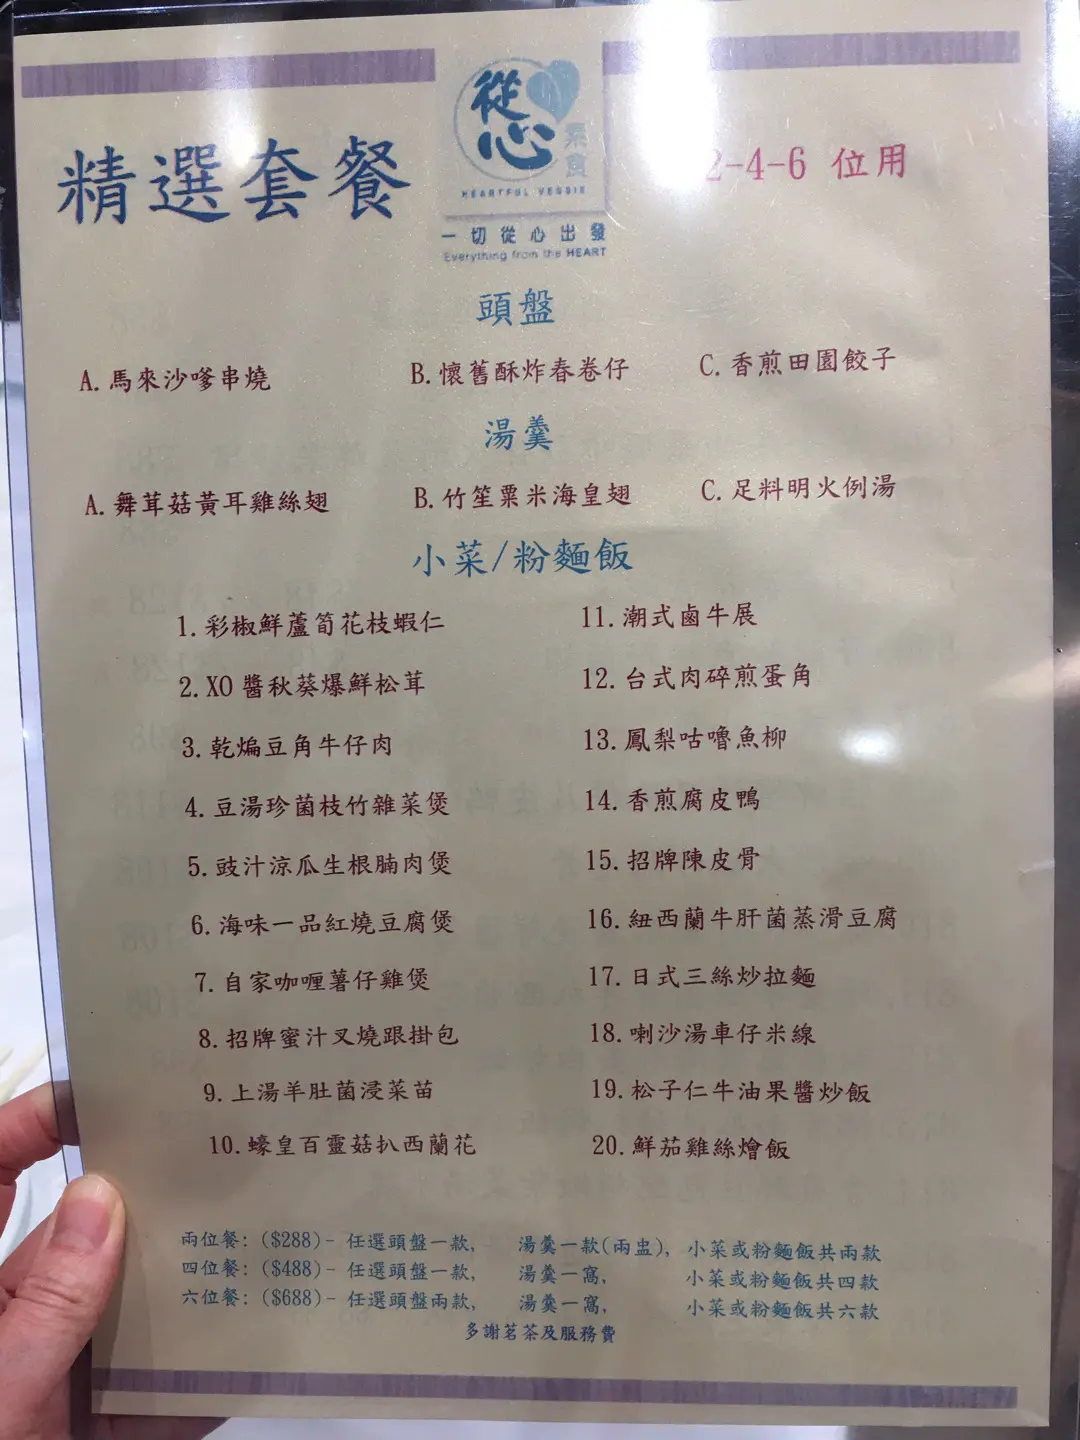 從心
素食
HEARTFUL VEGGIE
一切從心出發
Everything from the HEART
精選套餐
2-4-6 位用
頭盤
A. 馬來沙嗲串燒
B. 懷舊酥炸春卷仔
C. 香煎田園餃子
湯羹
A. 舞茸菇黃耳雞絲翅
B. 竹笙粟米海皇翅
C. 足料明火例湯
小菜/粉麵飯
1. 彩椒鮮蘆筍花枝蝦仁
2. XO 醬秋葵爆鮮松茸
3. 乾煸豆角牛仔肉
4. 豆湯珍菌枝竹雜菜煲
5. 豉汁涼瓜生根腩肉煲
6. 海味一品紅燒豆腐煲
7. 自家咖喱薯仔雞煲
8. 招牌蜜汁叉燒跟掛包
9. 上湯羊肚菌浸菜苗
10. 蠔皇百靈菇扒西蘭花
11. 潮式鹵牛展
12. 台式肉碎煎蛋角
13. 鳳梨咕嚕魚柳
14. 香煎腐皮鴨
15. 招牌陳皮骨
16. 紐西蘭牛肝菌蒸滑豆腐
17. 日式三絲炒拉麵
18. 喇沙湯車仔米線
19. 松子仁牛油果醬炒飯
20. 鮮茄雞絲燴飯
兩位餐: ($288)- 任選頭盤一款, 湯羹一款(兩盅), 小菜或粉麵飯共兩款
四位餐: ($488)- 任選頭盤一款, 湯羹一窩, 小菜或粉麵飯共四款
六位餐: ($688)- 任選頭盤兩款, 湯羹一窩, 小菜或粉麵飯共六款
多謝茗茶及服務費